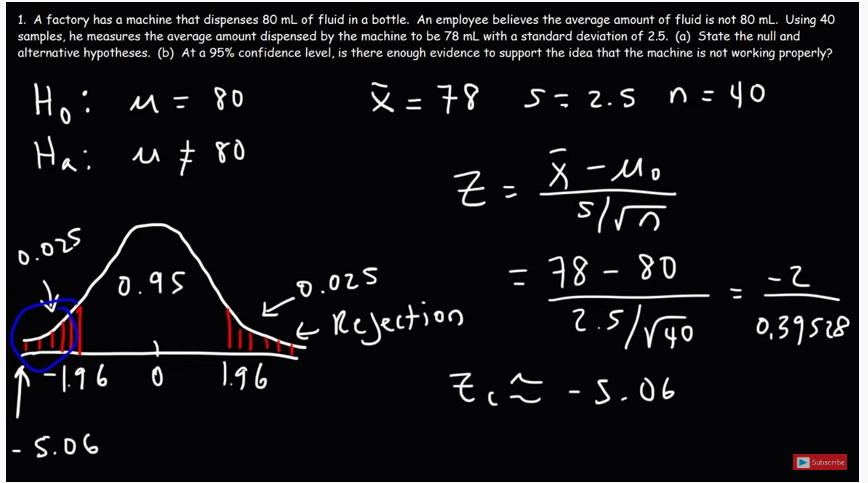 1. A factory has a machine that dispenses 80 mL of fluid in a bottle. An employee believes the average amount of fluid is not 80 mL. Using 40
samples, he measures the average amount dispensed by the machine to be 78 mL with a standard deviation of 2.5. (a) State the null and
alternative hypotheses. (b) At a 95% confidence level, is there enough evidence to support the idea that the machine is not working properly?
H₀: μ = 80
x̄ = 78 s = 2.5 n = 40
Hₐ: μ ≠ 80
Z = (x̄ - μ₀) / (s/√n)
= (78 - 80) / (2.5/√40) = -2 / 0.39528
Zc ≈ -5.06
0.025
0.95
0.025
Rejection
-1.96 0 1.96
-5.06
Subscribe